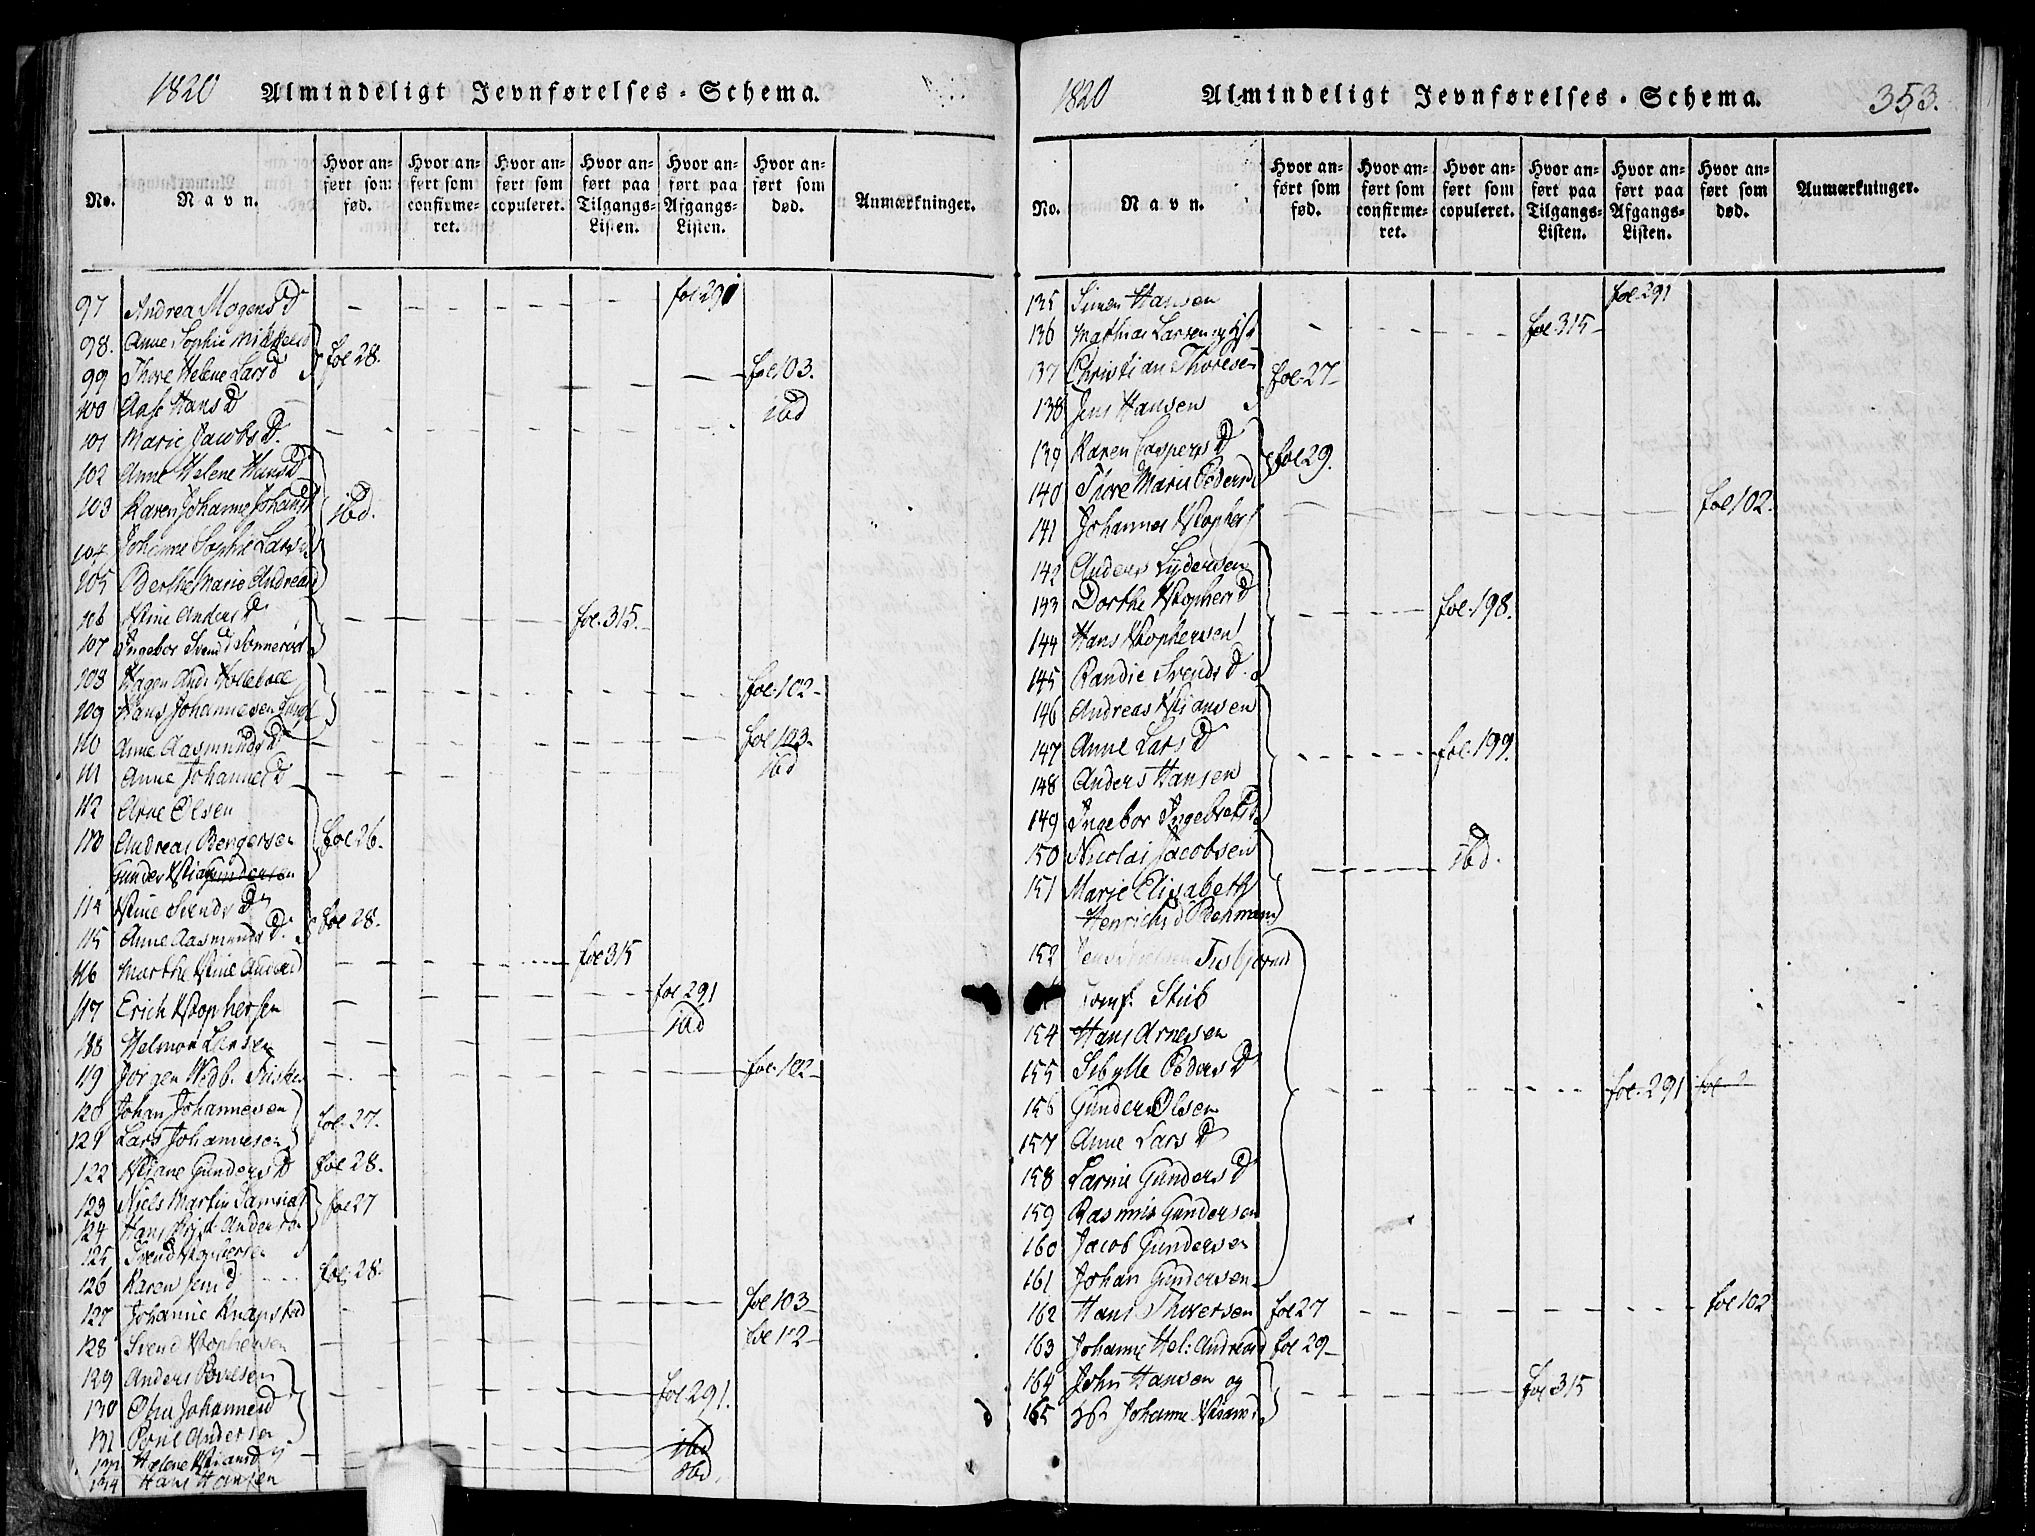 1820 Almindeligt Jevnførelses-Schema.
No.
Navn.
Hvor anført som fød.
Hvor anført som confirmeret.
Hvor anført som copuleret.
Hvor anført paa Tilgangs-Listen.
Hvor anført paa Afgangs-Listen.
Hvor anført som død.
Anmærkninger.
97 Andrea Mogens D fol 291
98. Anne Sophie Mikkelsd
99 Thore Helene Lars d fol 28. fol 103.
100 Aase Hans D ibd
101 Marie Jacobs D.
102 Anne Helene Hans D
103 Karen Johanne Johans ibd.
104 Johanne Sophie Lars
105 Berthe Marie Andreas d
106 Stine Anders D fol. 315.
107 Ingebor Svend d
108 Hagen And:
109 Hans Johannesen fol. 102
110 Anne Aasmunds D fol 103.
111 Anne Johannes D ibd
112 Arne Olsen
113 Andreas Bengersen fol 26.
Gundersen
114 Stine Svends D
115 Anne Aasmunds D. fol 28.
116 Marthe Stine Anders d fol 315
117 Erich Xstophersen fol 291
118 Helmon ibd
119 Jørgen Wedb. fol. 102
120 Johan Johannesen
121 Lars Johannesen fol. 27.
122 Xtiane Gunders D fol 28.
123 Niels Martin Samuels
124 Hans Andersen fol 27
125 Svend Xstophersen
126 Karen Jens d fol. 28.
127 Johanne Knapstad fol 103
128 Svend Xstophersen fol 102
129 Anders Povelsen
130 Johannes d fol 291.
131 Povel Andersen
Helene Xtians d ibd
134 Hans Hansen ibd.
1820 Almindeligt Jevnførelses-Schema. 353.
No.
Navn.
Hvor anført som fød.
Hvor anført som confirmeret.
Hvor anført som copuleret.
Hvor anført paa Tilgangs-Listen.
Hvor anført paa Afgangs-Listen.
Hvor anført som død.
Anmærkninger.
135 Simen Hansen fol. 291
136 Mathias Larsen og fol 315
137 Christian Thoresen fol. 27
138 Jens Hansen
139 Karen Caspers D fol 29.
140 Thore Marie Peders d
141 Johannes Xstophers fol 102.
142 Anders Lydersen
143 Dorthe Xstophers D fol. 198.
144 Hans Xstophersen
145 Randie Svends D.
146 Andreas Xtiansen
147 Anne Lars D fol. 199.
148 Anders Hansen
149 Ingebor Ingebrets
150 Nicolai Jacobsen ibd.
151 Marie Elisabeth
Henrichs d
152
Jomf. Stub
154 Hans Arnesen
155 Sibylle Peders D
fol. 291 fol
156 Gunder Olsen
157 Anne Lars D
158 Gunders D
159 Rasmus Gundersen
160 Jacob Gundersen
161 Johan Gundersen
162 Hans Thoresen fol 27 fol 102
163 Johanne Hel: Andreas d fol 29
164 John Hansen og fol 315
165 Johanne